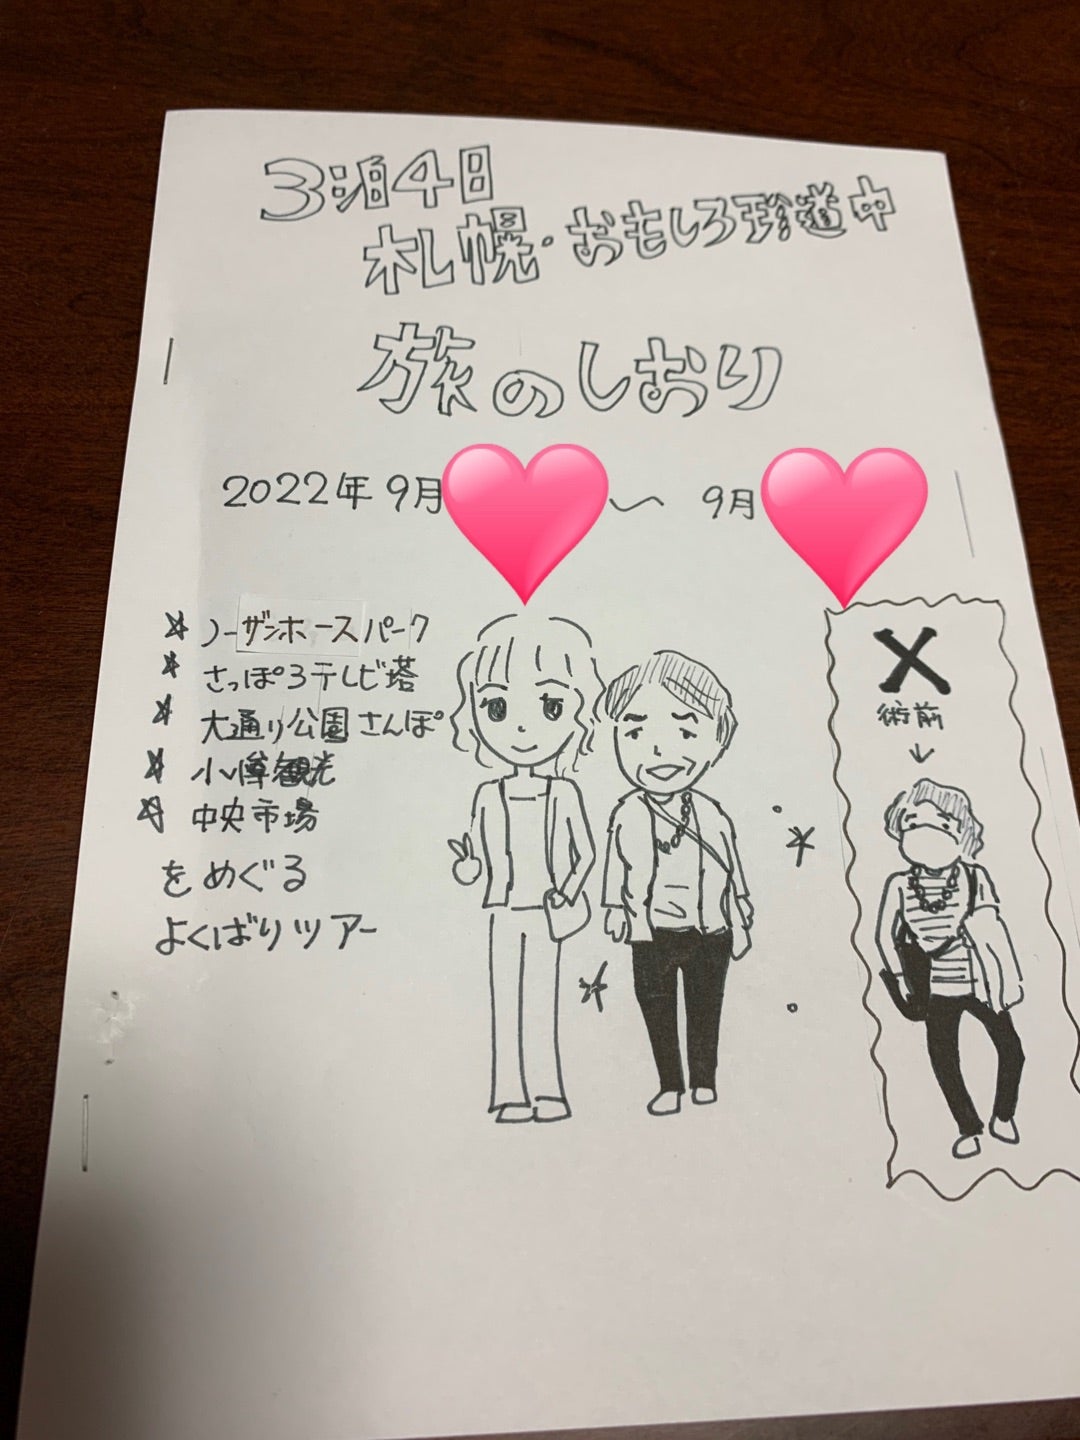 3泊4日
札幌・おもしろ珍道中
旅のしおり
2022年 9月 〜 9月
☆ ノーザンホースパーク
☆ さっぽろテレビ塔
☆ 大通り公園さんぽ
☆ 小樽観光
☆ 中央市場
をめぐる
よくばりツアー
術前
↓